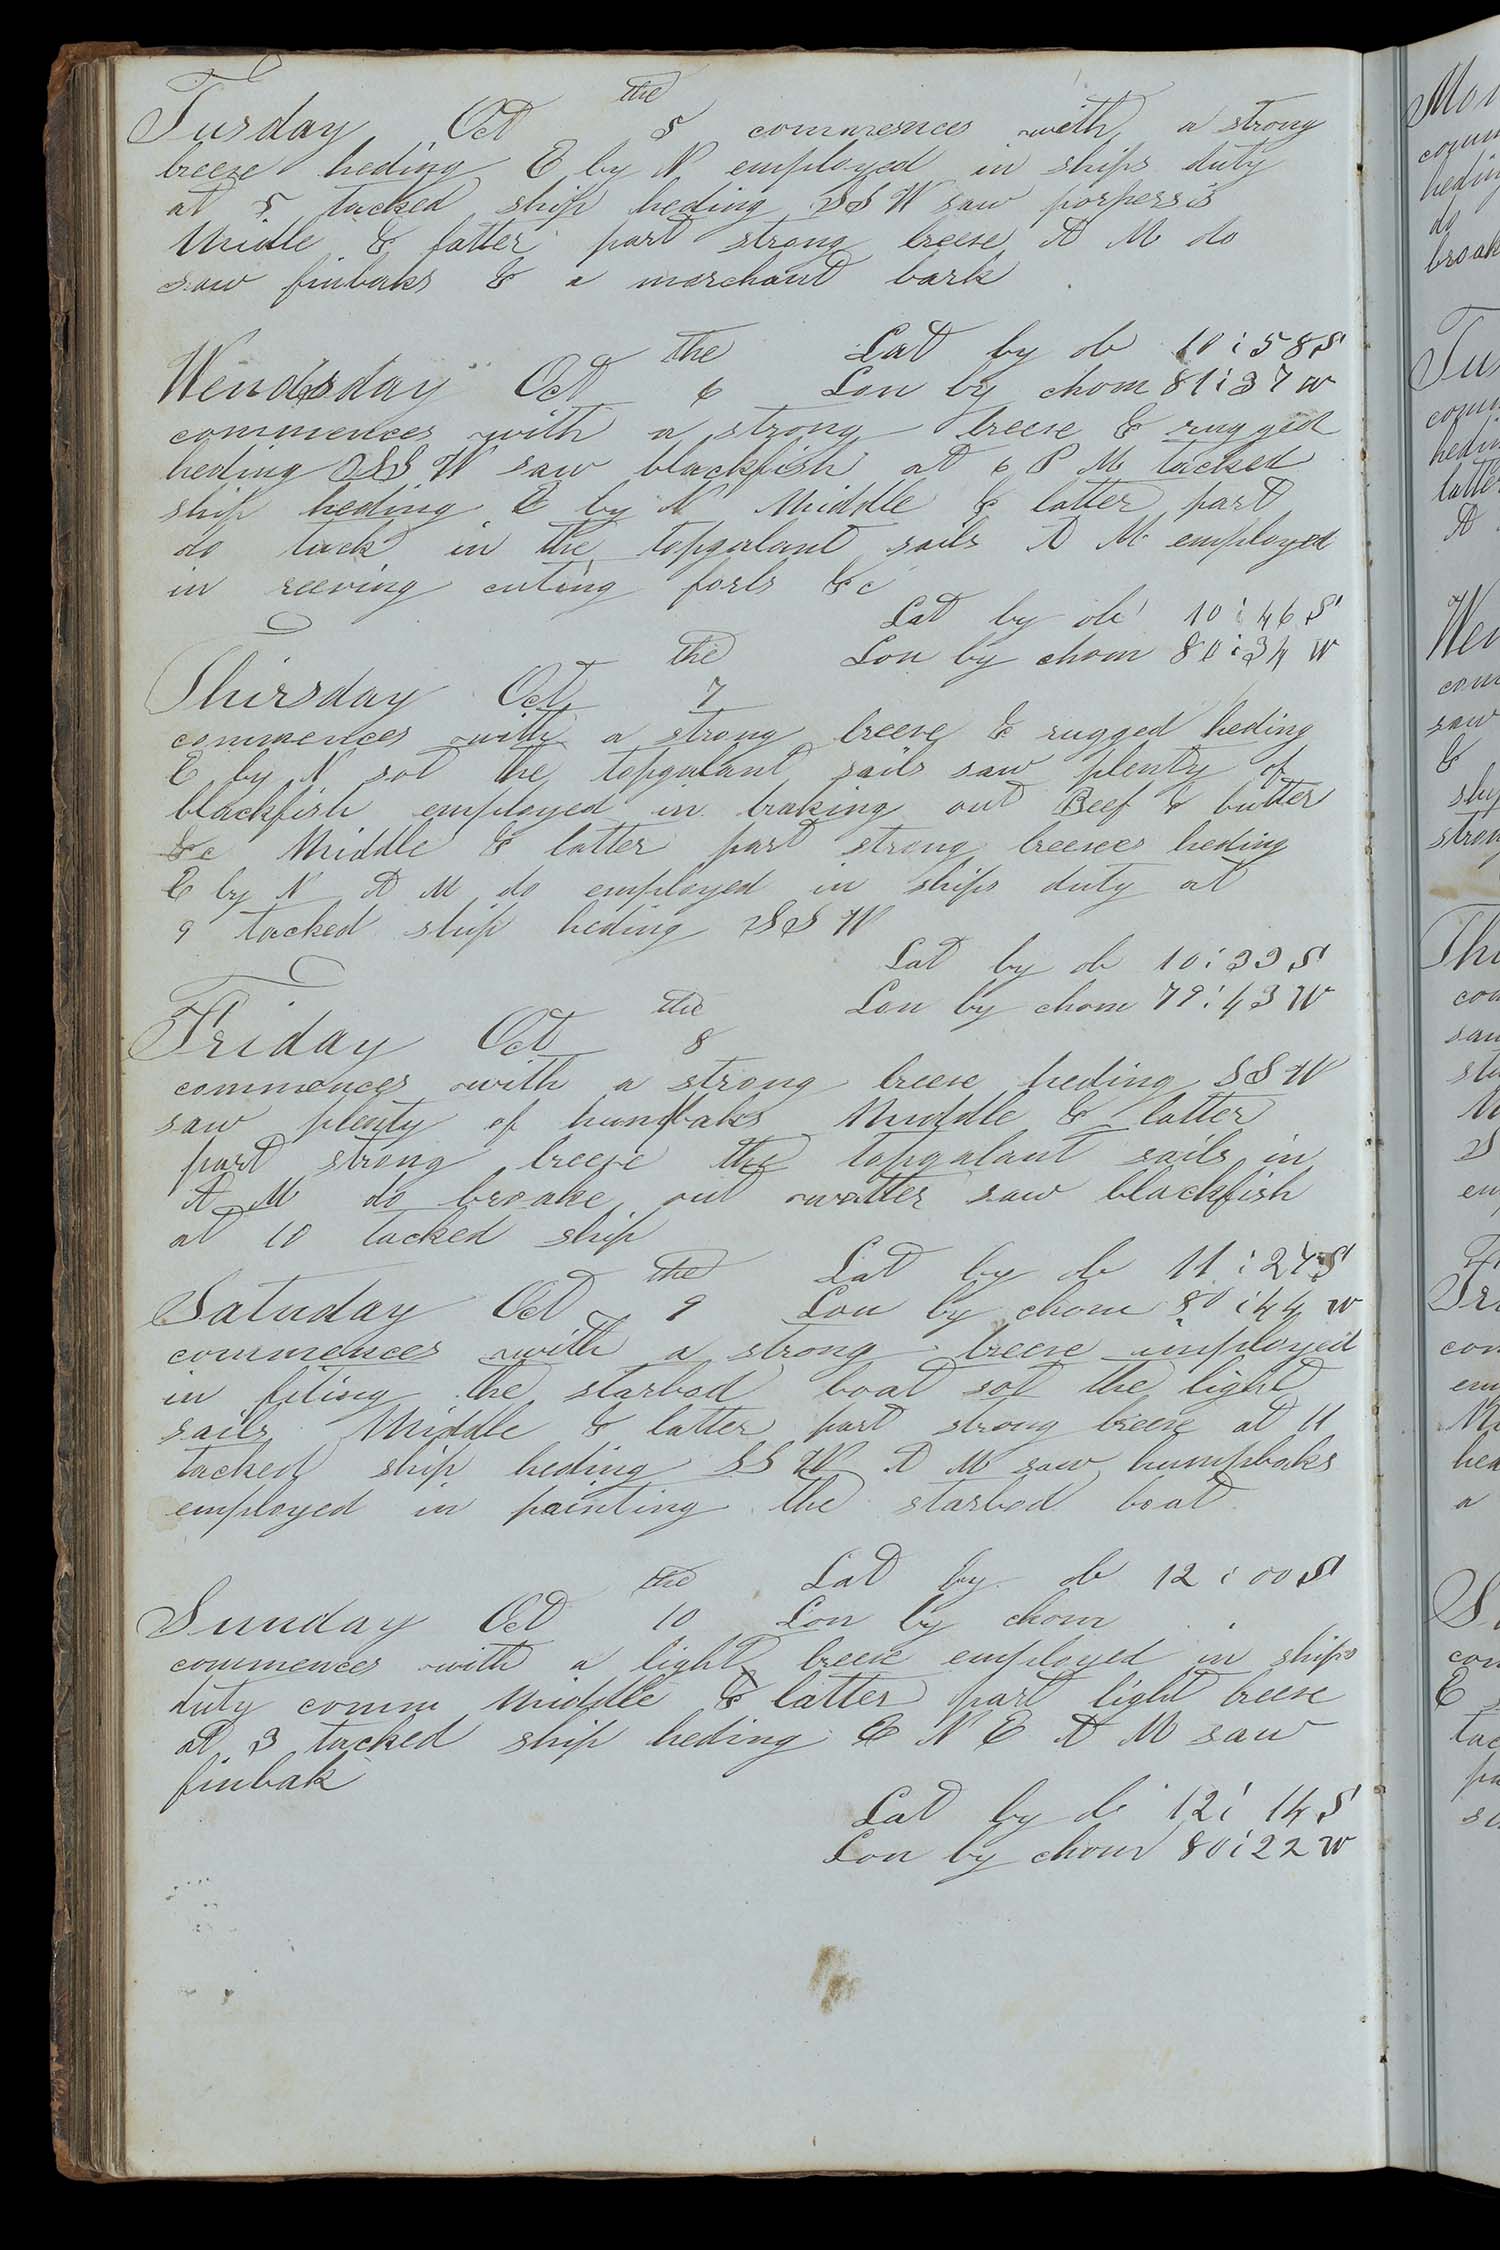 Tusday Oct the 5 commences with a strong
breeze heding E by N employed in ships duty
at 5 tacked ship heding SSW saw porpersis
Midle & latter part strong breeze A M do
saw finbaks & a marchant bark
Lat by ob 10:58 S
Wendsday Oct the 6 Lon by chom 81:37 W
commences with a strong breeze & rugged
heding SSW saw blackfish at 6 P M tacked
ship heding E by N Middle & latter part
do tuck in the topgalant sails A M employed
in reeving cuting forls &c
Lat by ob 10:46 S
Lon by chom 80:34 W
Thirsday Oct the 7
commences with a strong breeze & rugged heding
E by N sot the topgalant sails saw plenty of
blackfish employed in braking out Beef & butter
&c Middle & latter part strong breezes heding
E by N A M do employed in ships duty at
9 tacked ship heding SSW
Lat by ob 10:33 S
Lon by chom 79:43 W
Friday Oct the 8
commences with a strong breeze heding SSW
saw plenty of humpbaks Middle & latter
part strong breeze the topgalant sails in
A M do broake out watter saw blackfish
at 10 tacked ship
Lat by ob 11:24 S
Satuday Oct the 9 Lon by chom 80:44 W
commences with a strong breeze imployed
in fiting the starbod boat sot the light
sails Middle & latter part strong breeze at 11
tacked ship heding SSW A M saw humpbaks
employed in painting the starbod boat
Lat by ob 12:00 S
Sunday Oct the 10 Lon by chom
commences with a light breeze employed in ships
duty comm Middle & latter part light breeze
at 3 tacked ship heding E N E A M saw
finbak
Lat by ob 12:14 S
Lon by chom 80:22 W